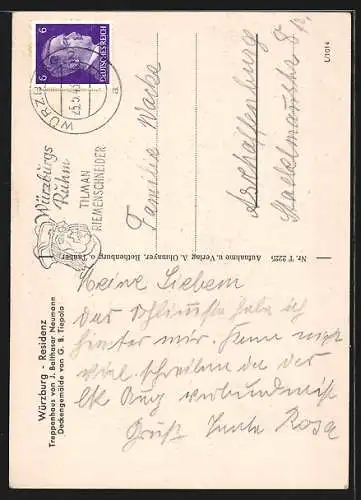 6 6
DEUTSCHES REICH
WÜRZBURG
25.5.43
a
Würzburgs
Ruhm
TILMAN
RIEMENSCHNEIDER
Familie Wacka
Aschaffenburg
L/1014
Nr. T 2225 Aufnahme u. Verlag A. Ohmayer, Rothenburg o. Tauber
Würzburg - Residenz
Treppenhaus von J. Balthasar Neumann
Deckengemälde von G. B. Tiepolo
Meine Lieben
das Schlimmste hab ich
hinter mir. Kann nicht
viel schreiben da der
Aug verbunden ist
Gruß Tante Rosa